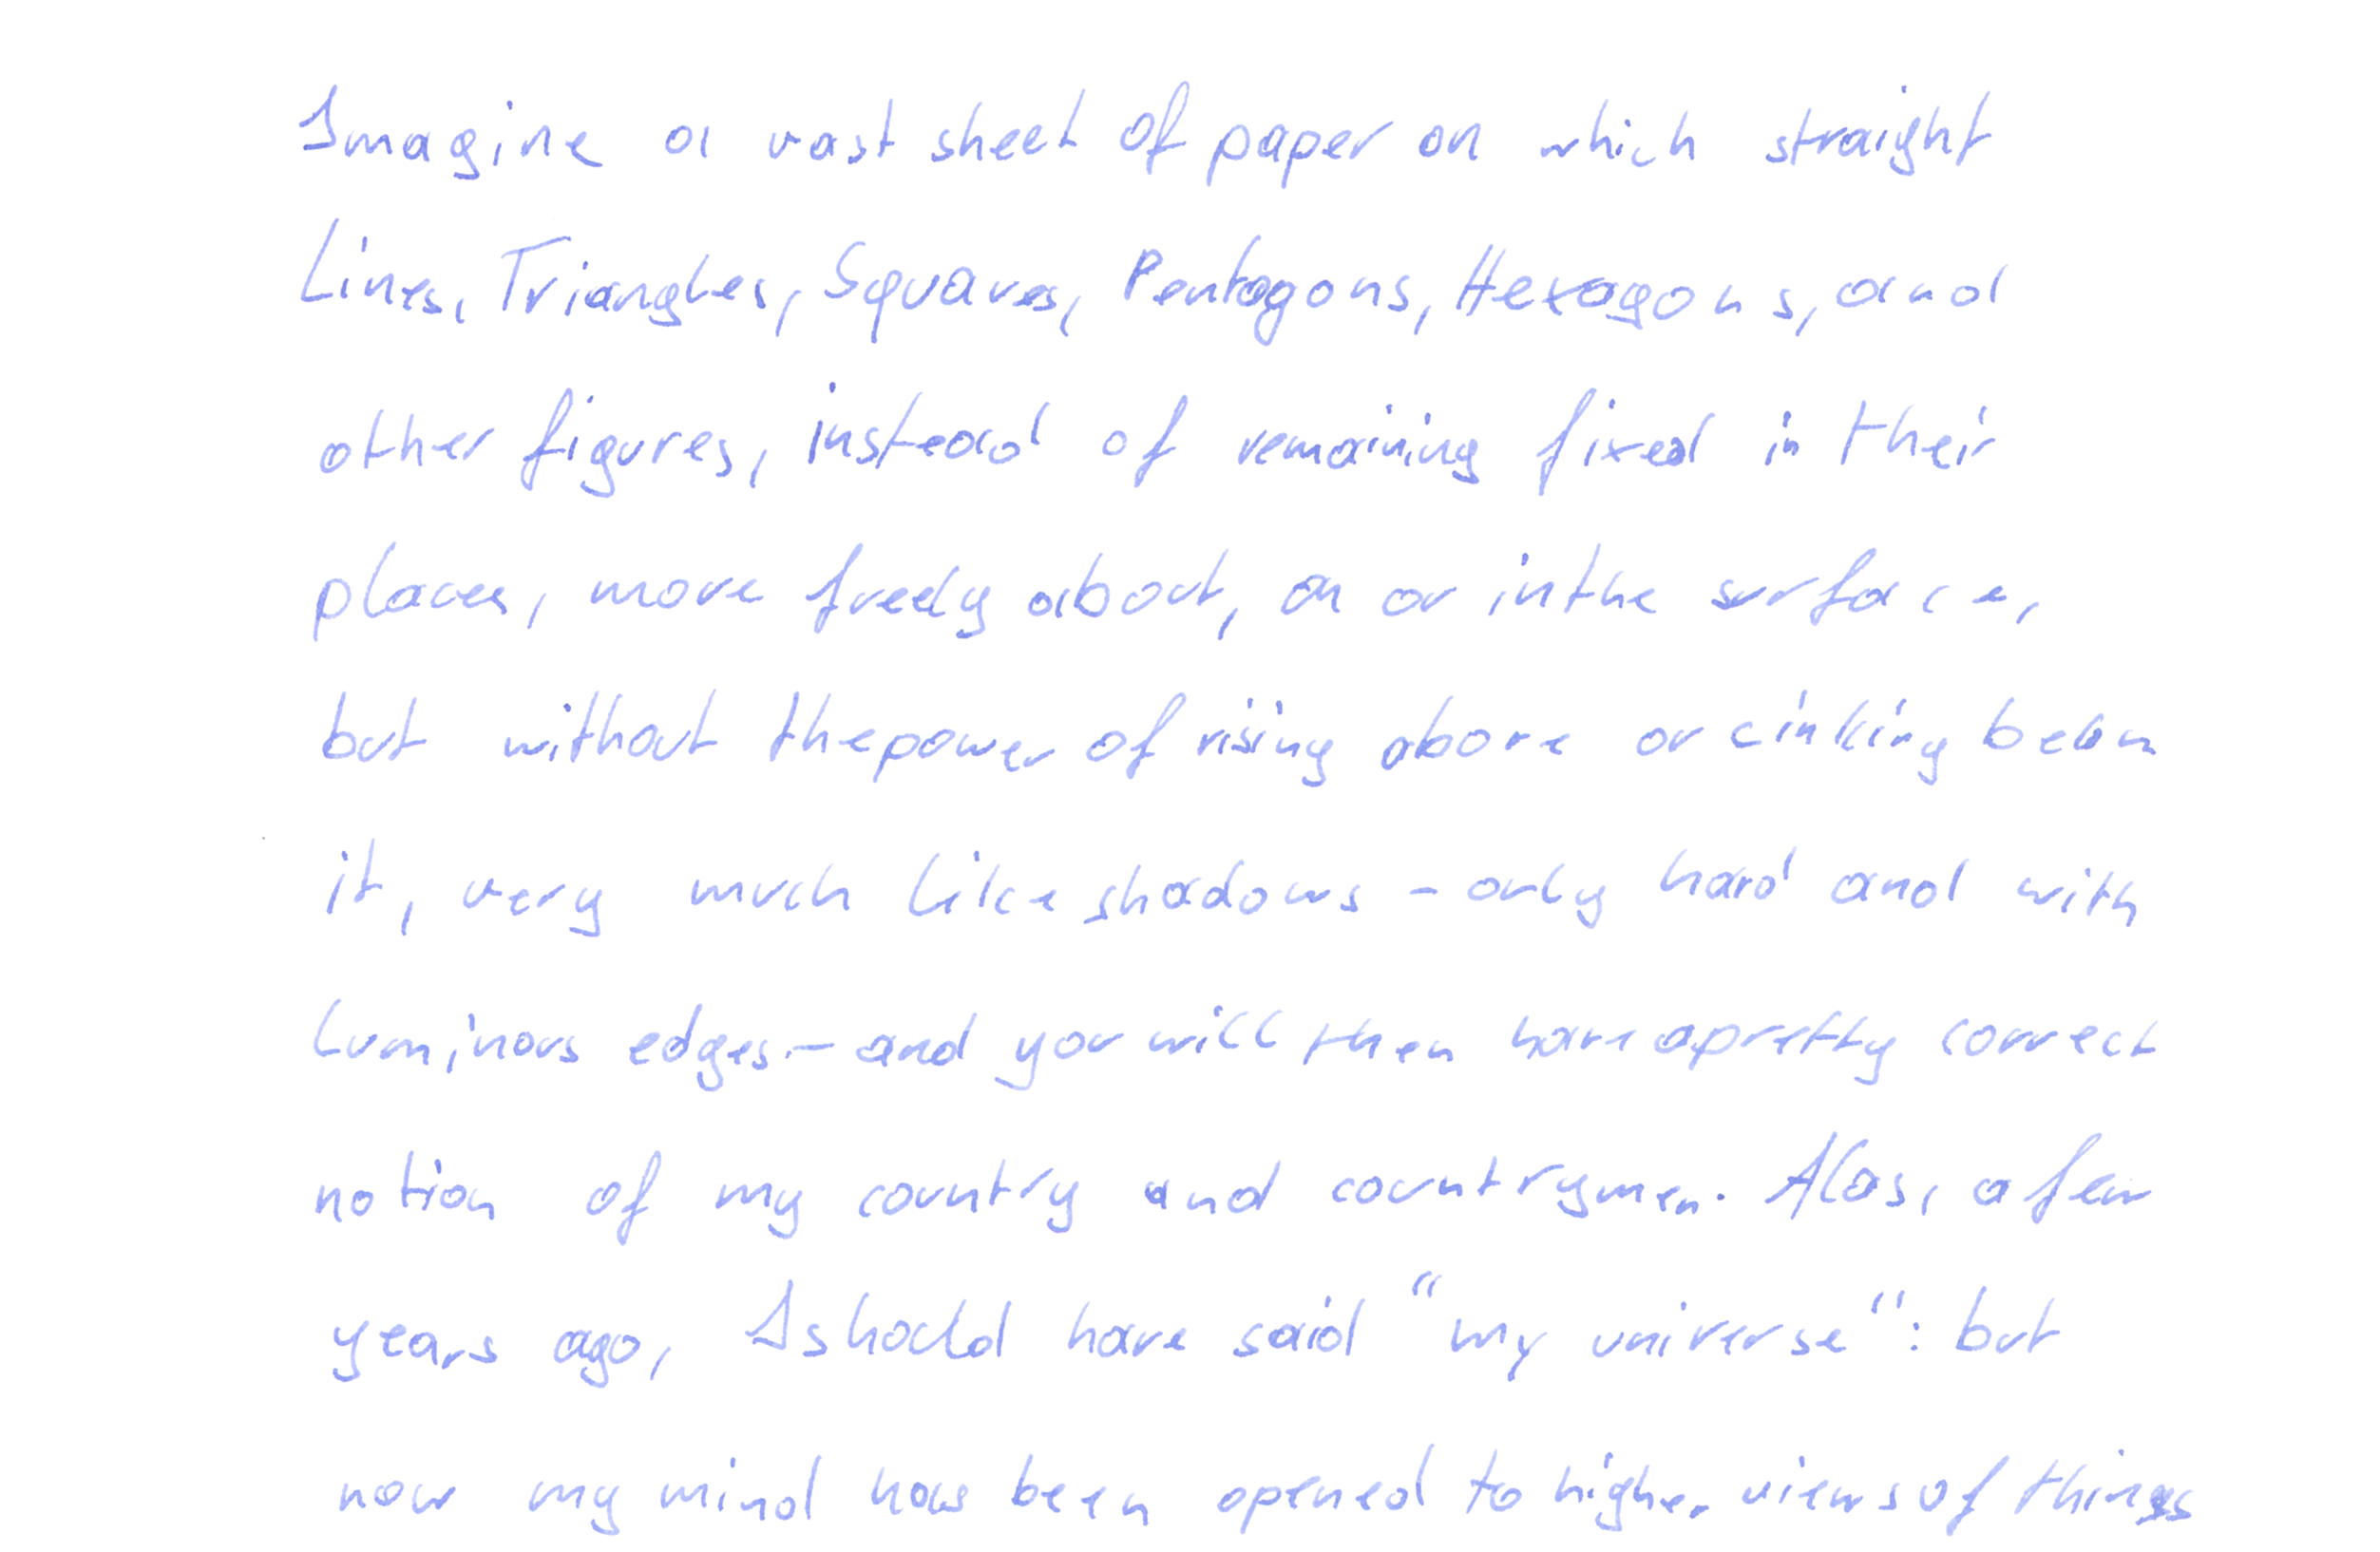 Imagine a vast sheet of paper on which straight
Lines, Triangles, Squares, Pentagons, Hexagons, and
other figures, instead of remaining fixed in their
places, move freely about, on or in the surface,
but without the power of rising above or cinking below
it, very much like shadows - only hard and with
luminous edges - and you will then have a pretty correct
notion of my country and countrymen. Alas, a few
years ago, I should have said “my universe“: but
now my mind has been opened to higher views of things